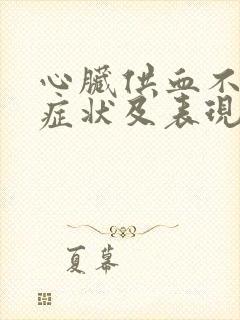 心臟供血不
症狀及表現
夏幕